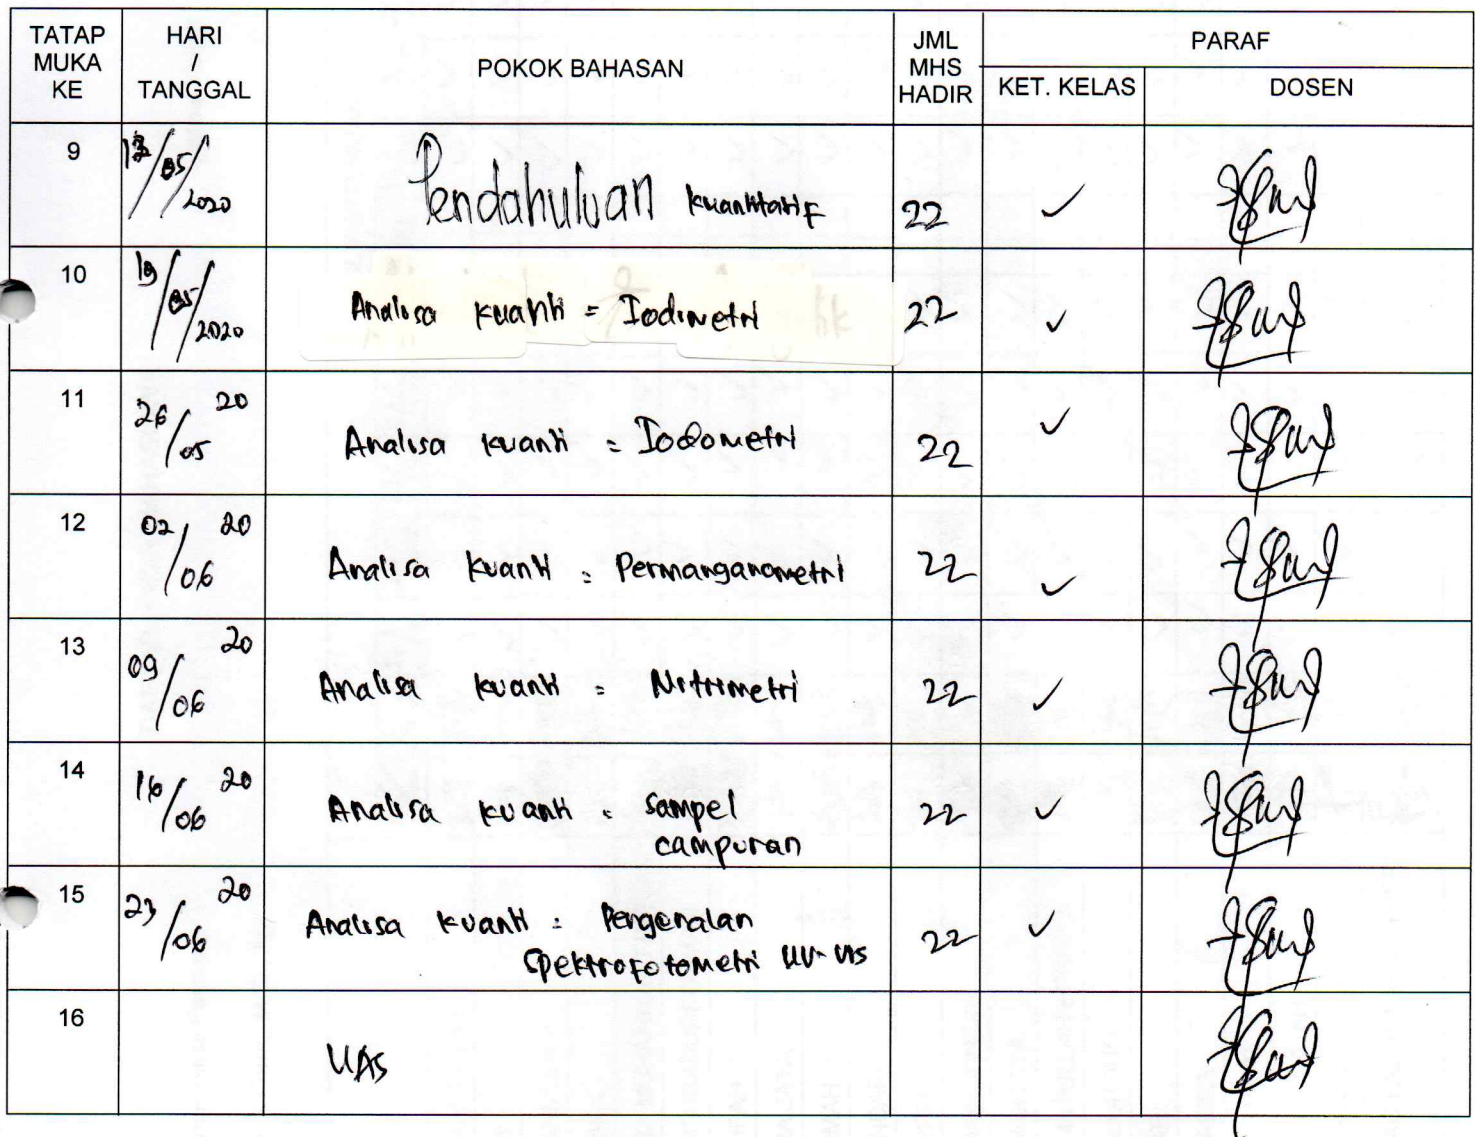 TATAP MUKA KE
HARI / TANGGAL
POKOK BAHASAN
JML MHS HADIR
PARAF
KET. KELAS
DOSEN
9
/05/2020
Pendahuluan kuantitatif
22
✓
10
19/05/2020
Analisa kuanti = Iodimetri
22
✓
11
26/05 20
Analisa kuanti = Iodometri
22
✓
12
02/06 20
Analisa kuanti = Permanganometri
22
✓
13
09/06 20
Analisa kuanti = Nitrimetri
22
✓
14
16/06 20
Analisa kuanti = sampel
campuran
22
✓
15
23/06 20
Analisa kuanti = Pengenalan
spektrofotometri UV-Vis
22
✓
16
UAS